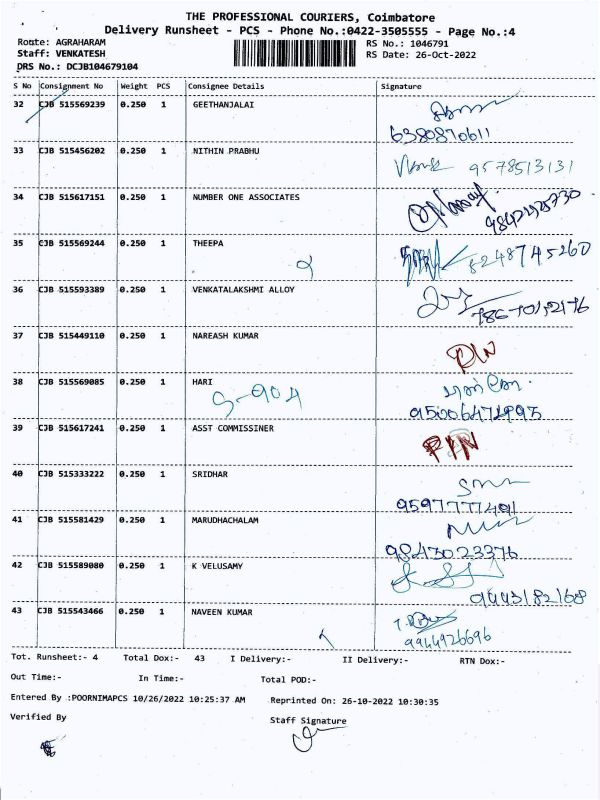 THE PROFESSIONAL COURIERS, Coimbatore
Delivery Runsheet - PCS - Phone No.:0422-3505555 - Page No.:4
Route: AGRAHARAM
RS No.: 1046791
Staff: VENKATESH
RS Date: 26-Oct-2022
DRS No.: DCJB104679104
S No Consignment No Weight PCS Consignee Details Signature
32 CJB 515569239 0.250 1 GEETHANJALAI
6380870611
33 CJB 515456202 0.250 1 NITHIN PRABHU
9578513131
34 CJB 515617151 0.250 1 NUMBER ONE ASSOCIATES
35 CJB 515569244 0.250 1 THEEPA
8248745260
36 CJB 515593389 0.250 1 VENKATALAKSHMI ALLOY
37 CJB 515449110 0.250 1 NAREASH KUMAR
38 CJB 515569085 0.250 1 HARI
39 CJB 515617241 0.250 1 ASST COMMISSINER
40 CJB 515333222 0.250 1 SRIDHAR
9597777491
41 CJB 515581429 0.250 1 MARUDHACHALAM
9843023376
42 CJB 515589080 0.250 1 K VELUSAMY
9443182168
43 CJB 515543466 0.250 1 NAVEEN KUMAR
9944926696
Tot. Runsheet:- 4 Total Dox:- 43 I Delivery:- II Delivery:- RTN Dox:-
Out Time:- In Time:- Total POD:-
Entered By :POORNIMAPCS 10/26/2022 10:25:37 AM Reprinted On: 26-10-2022 10:30:35
Verified By Staff Signature